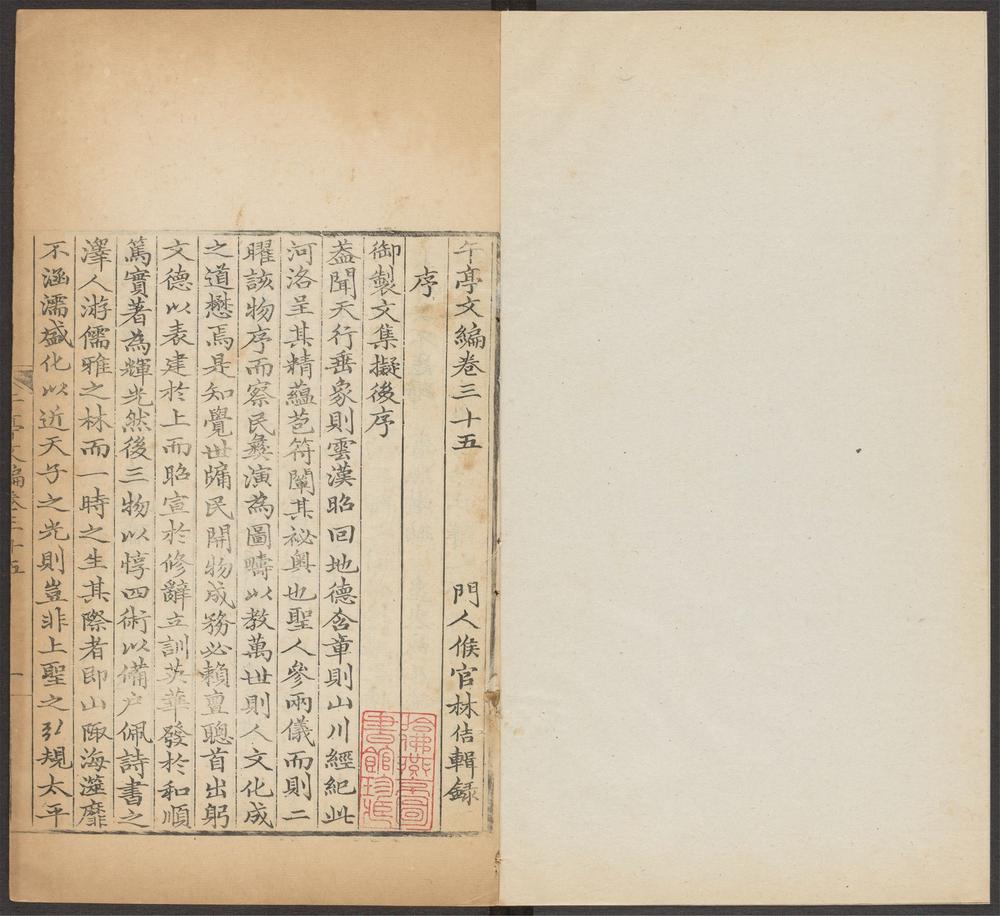 午亭文編卷三十五
門人候官林佶輯錄
序
御製文集擬後序
葢聞天行垂象則雲漢昭回地德含章則山川經紀此
河洛呈其精蘊苞符闡其祕奧也聖人參兩儀而則二
曜該物序而察民彝演為圖疇以教萬世則人文化成
之道懋焉是知覺世牖民開物成務必賴亶聰首出躬
文德以表建於上而昭宣於修辭立訓英華發於和順
篤實著為輝光然後三物以惇四術以備戶佩詩書之
澤人游儒雅之林而一時之生其際者即山陬海澨靡
不涵濡盛化以近天子之光則豈非上聖之弘規太平
午亭文編卷三十五
一
哈佛燕京圖書館珍藏